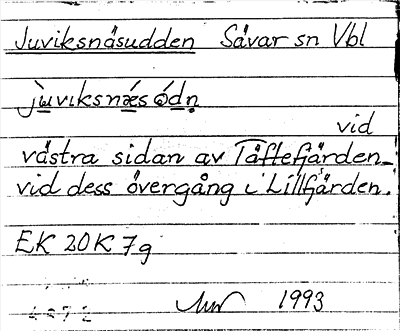 Juviksnäsudden Sävar sn Vbl
jùvıksnǽs ódn̥
vid
västra sidan av Täftefjärden
vid dess övergång i Lillfjärden.
EK 20K 7g
1993